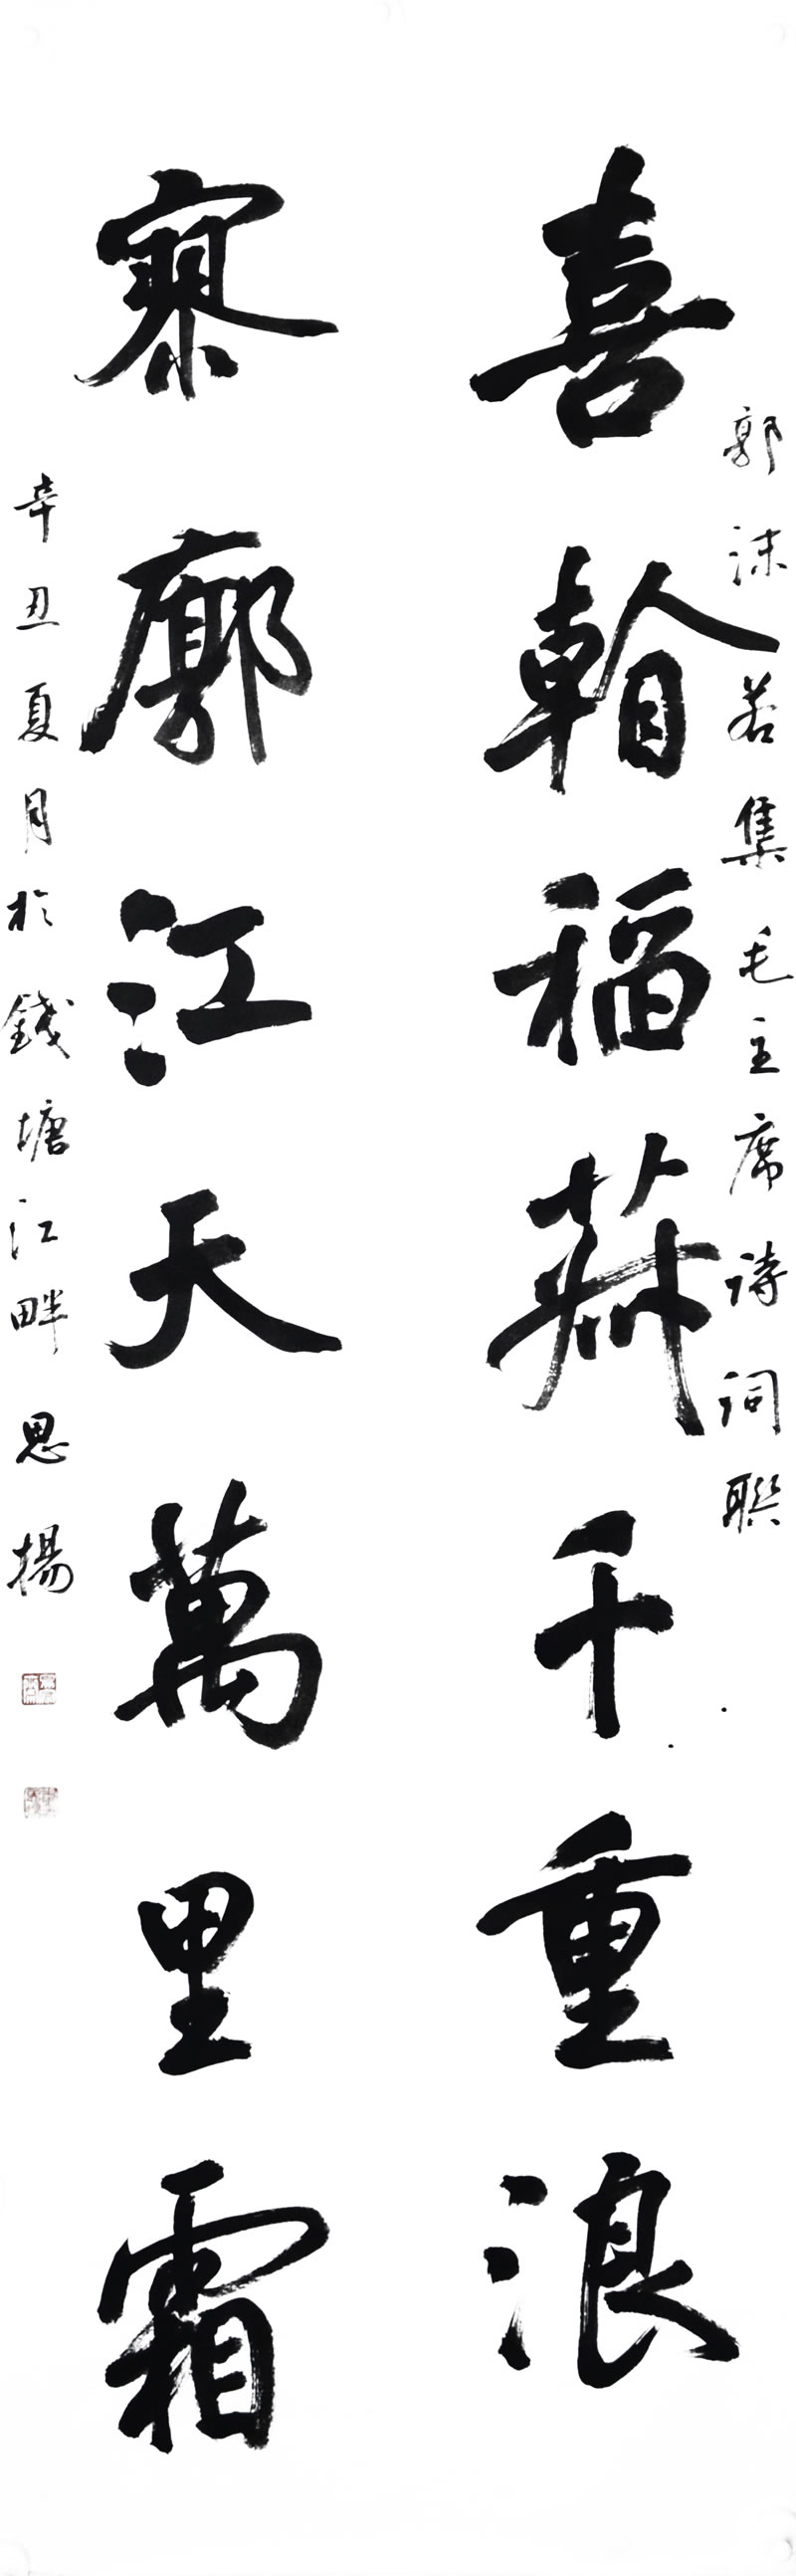 郭沫若集毛主席诗词聯
喜看稻菽千重浪
寥廓江天萬里霜
辛丑夏月於錢塘江畔思揚